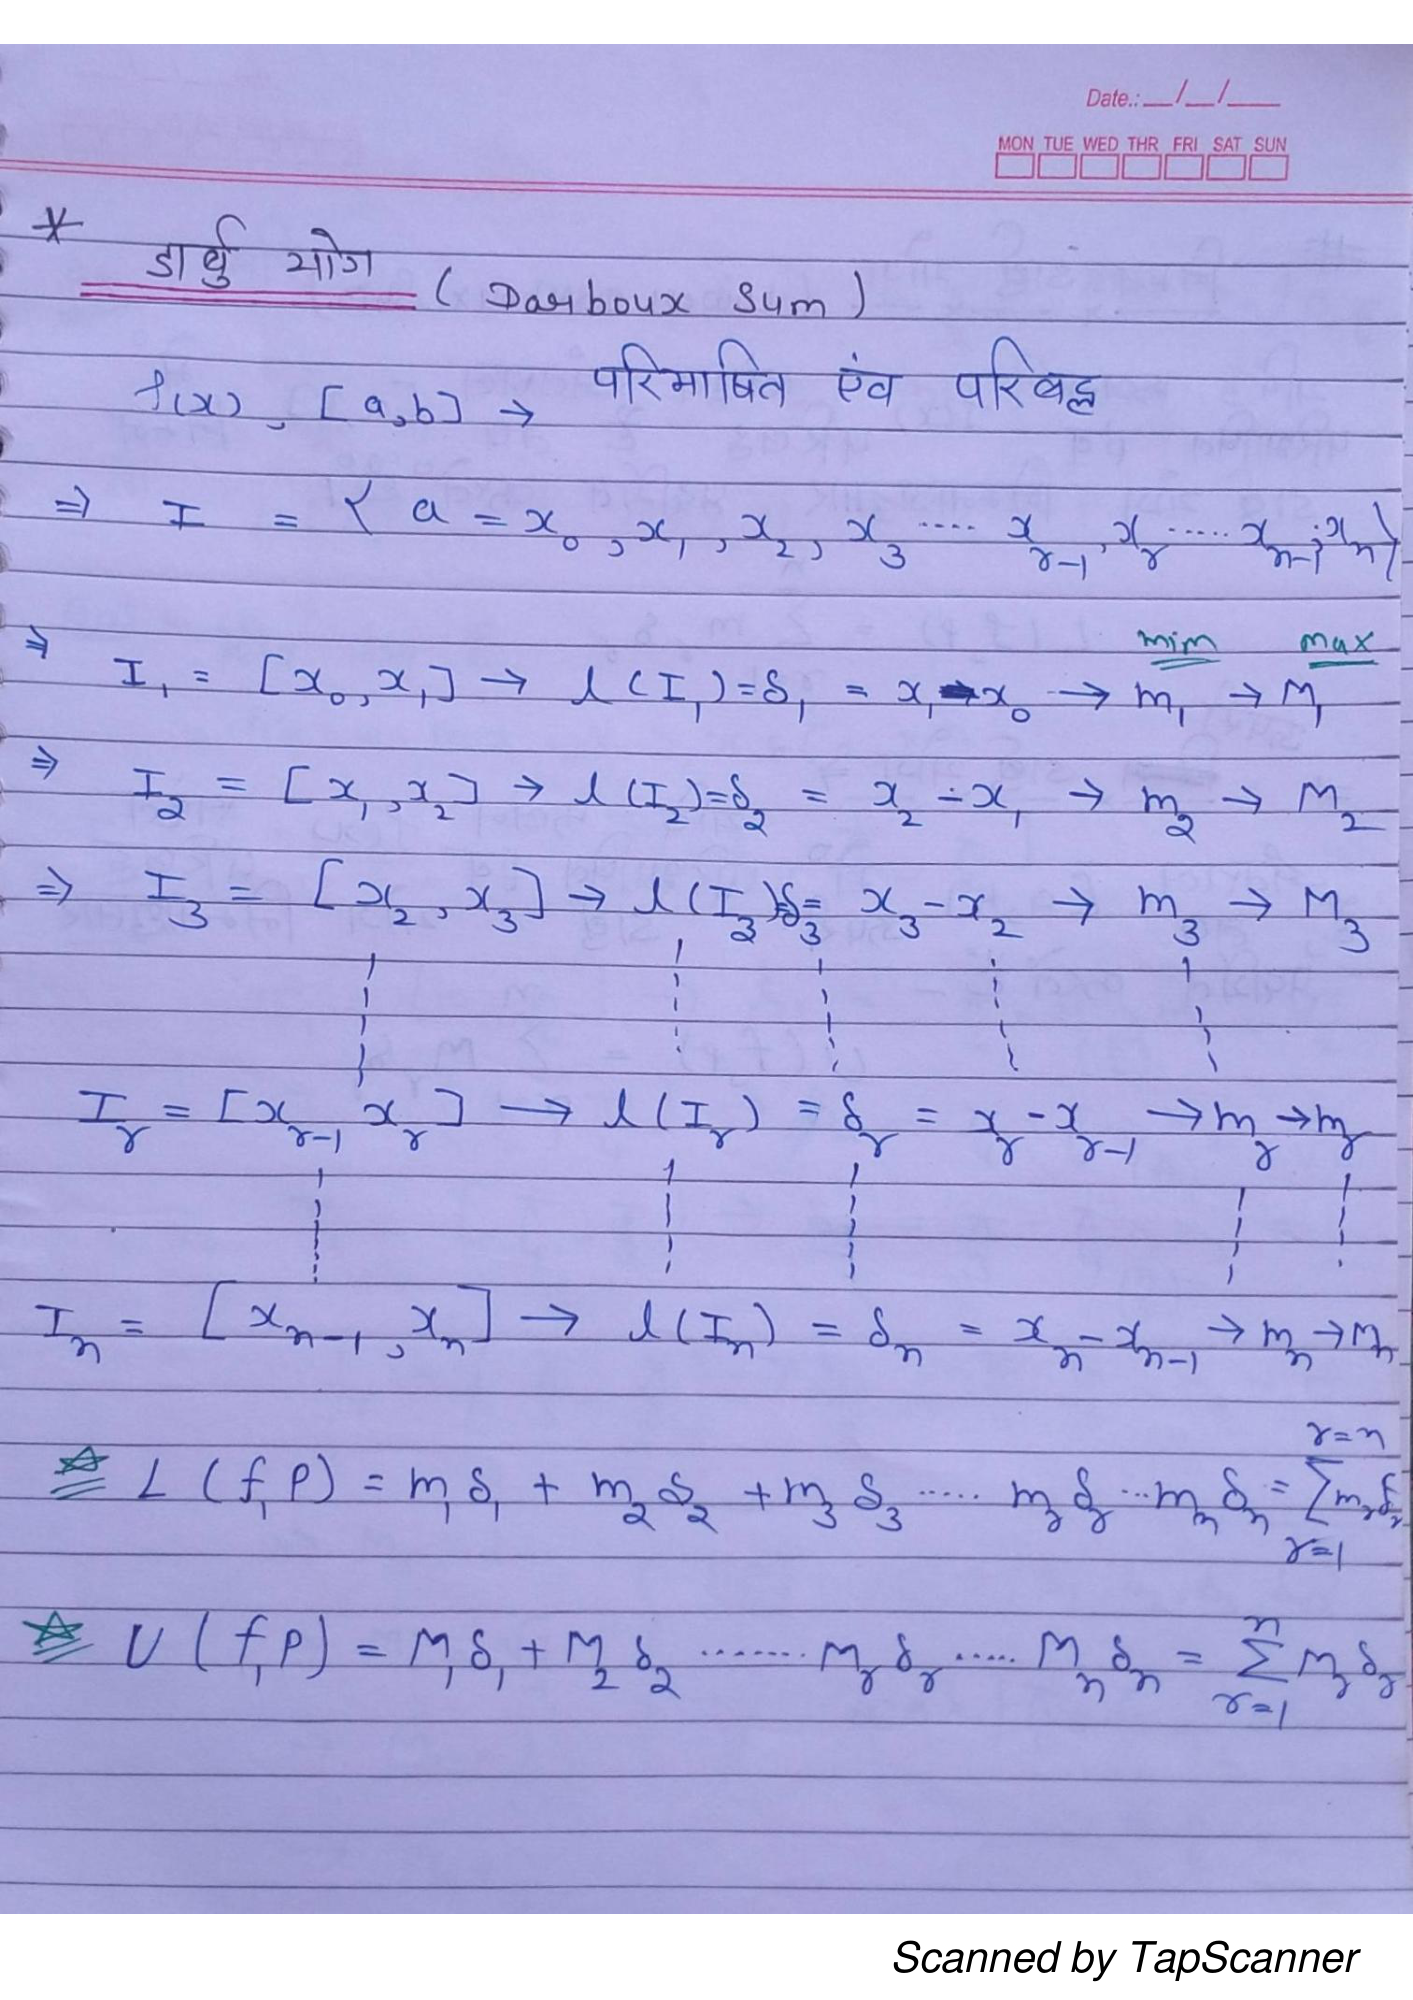 Date.: __/__/___
MON TUE WED THR FRI SAT SUN
* डार्बु योग (Darboux Sum)
f(x), [a,b] → परिभाषित एंव परिबद्ध
⇒ I = { a = x₀, x₁, x₂, x₃ .... xᵣ₋₁, xᵣ ..... xₙ₋₁, xₙ}
min max
⇒ I₁ = [x₀, x₁] → l(I₁) = δ₁ = x₁ - x₀ → m₁ → M₁
⇒ I₂ = [x₁, x₂] → l(I₂) = δ₂ = x₂ - x₁ → m₂ → M₂
⇒ I₃ = [x₂, x₃] → l(I₃) = δ₃ = x₃ - x₂ → m₃ → M₃
Iᵣ = [xᵣ₋₁ xᵣ] → l(Iᵣ) = δᵣ = xᵣ - xᵣ₋₁ → mᵣ → Mᵣ
Iₙ = [xₙ₋₁, xₙ] → l(Iₙ) = δₙ = xₙ - xₙ₋₁ → mₙ → Mₙ
☆ L(f,P) = m₁δ₁ + m₂δ₂ + m₃δ₃ ..... mᵣδᵣ ... mₙδₙ = ∑_{r=1}^{r=n} mᵣδᵣ
☆ U(f,P) = M₁δ₁ + M₂δ₂ ....... Mᵣδᵣ ..... Mₙδₙ = ∑_{r=1}^{n} Mᵣδᵣ
Scanned by TapScanner